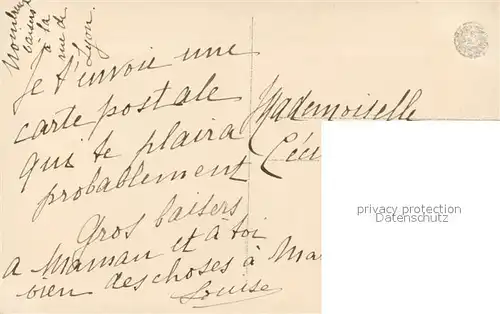 Nombreux
baisers
à la
rue de
Lyon.
Je t'envoie une
carte postale
qui te plaira
probablement
Gros baisers
a Maman et à toi
bien des choses à Ma
Louise
Mademoiselle
Céci
privacy protection
Datenschutz